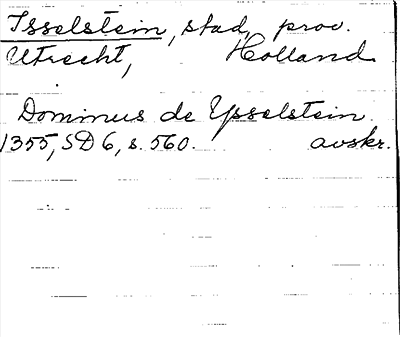 Isselstein, stad, prov.
Utrecht, Holland.
Dominus de Ysselstein
1355, SD 6, s. 560. avskr.